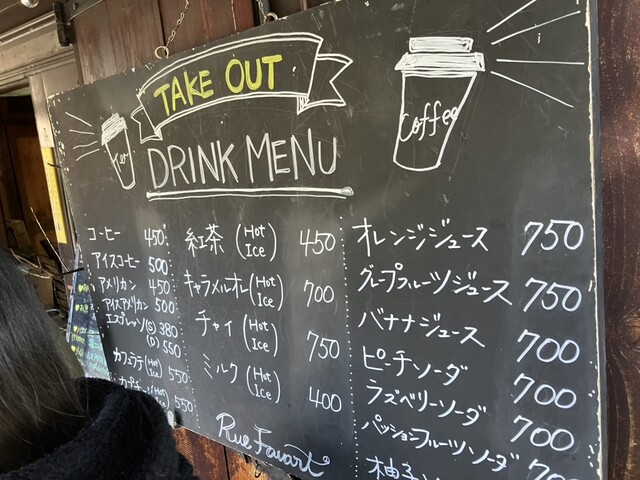 TAKE OUT
DRINK MENU
Coffee
コーヒー 450
アイスコーヒー 500
アメリカン 450
アイスアメリカン 500
エスプレッソ(S) 380
(D) 550
カフェラテ(Hot Ice) 550
カプチーノ 550
紅茶 (Hot Ice) 450
キャラメルオレ(Hot Ice) 700
チャイ (Hot Ice) 750
ミルク (Hot Ice) 400
Rue Favart
オレンジジュース 750
グレープフルーツジュース 750
バナナジュース 700
ピーチソーダ 700
ラズベリーソーダ 700
パッションフルーツソーダ 700
柚子